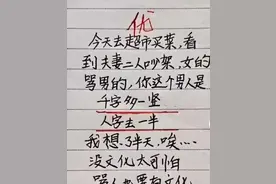 优
今天去超市买菜，看
到夫妻二人吵架，女的
骂男的，你这个男人是
千字多一竖
人字去一半
我想了半天，唉…
没文化太可怕
骂人都要有文化